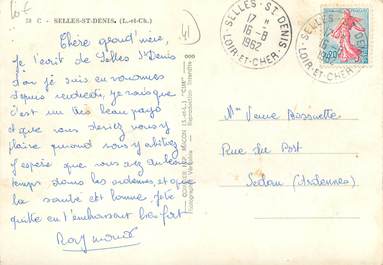 58 C - SELLES-ST-DENIS. (L.-et-Ch.)
Chère grand'mère,
je t'écrit de Selles St Denis
d'où je suis en vacances
depuis vendredi, je sais que
c'est un très beau pays
et que vous devez vous y
plaire quand vous y habitiez
J'espère que vous avez du beau
temps dans les ardennes, et que
la santé est bonne, je te
quitte en t'embrassant bien fort
Raymonde
41
COMBIER IMP. MACON (S.-et-L.) "CIM"
Reproduction Interdite
SELLES-ST DENIS
17 H
16-8
1962
LOIR-ET-CHER
Mme Veuve Bossuette
Rue du Port
Sedan (Ardennes)